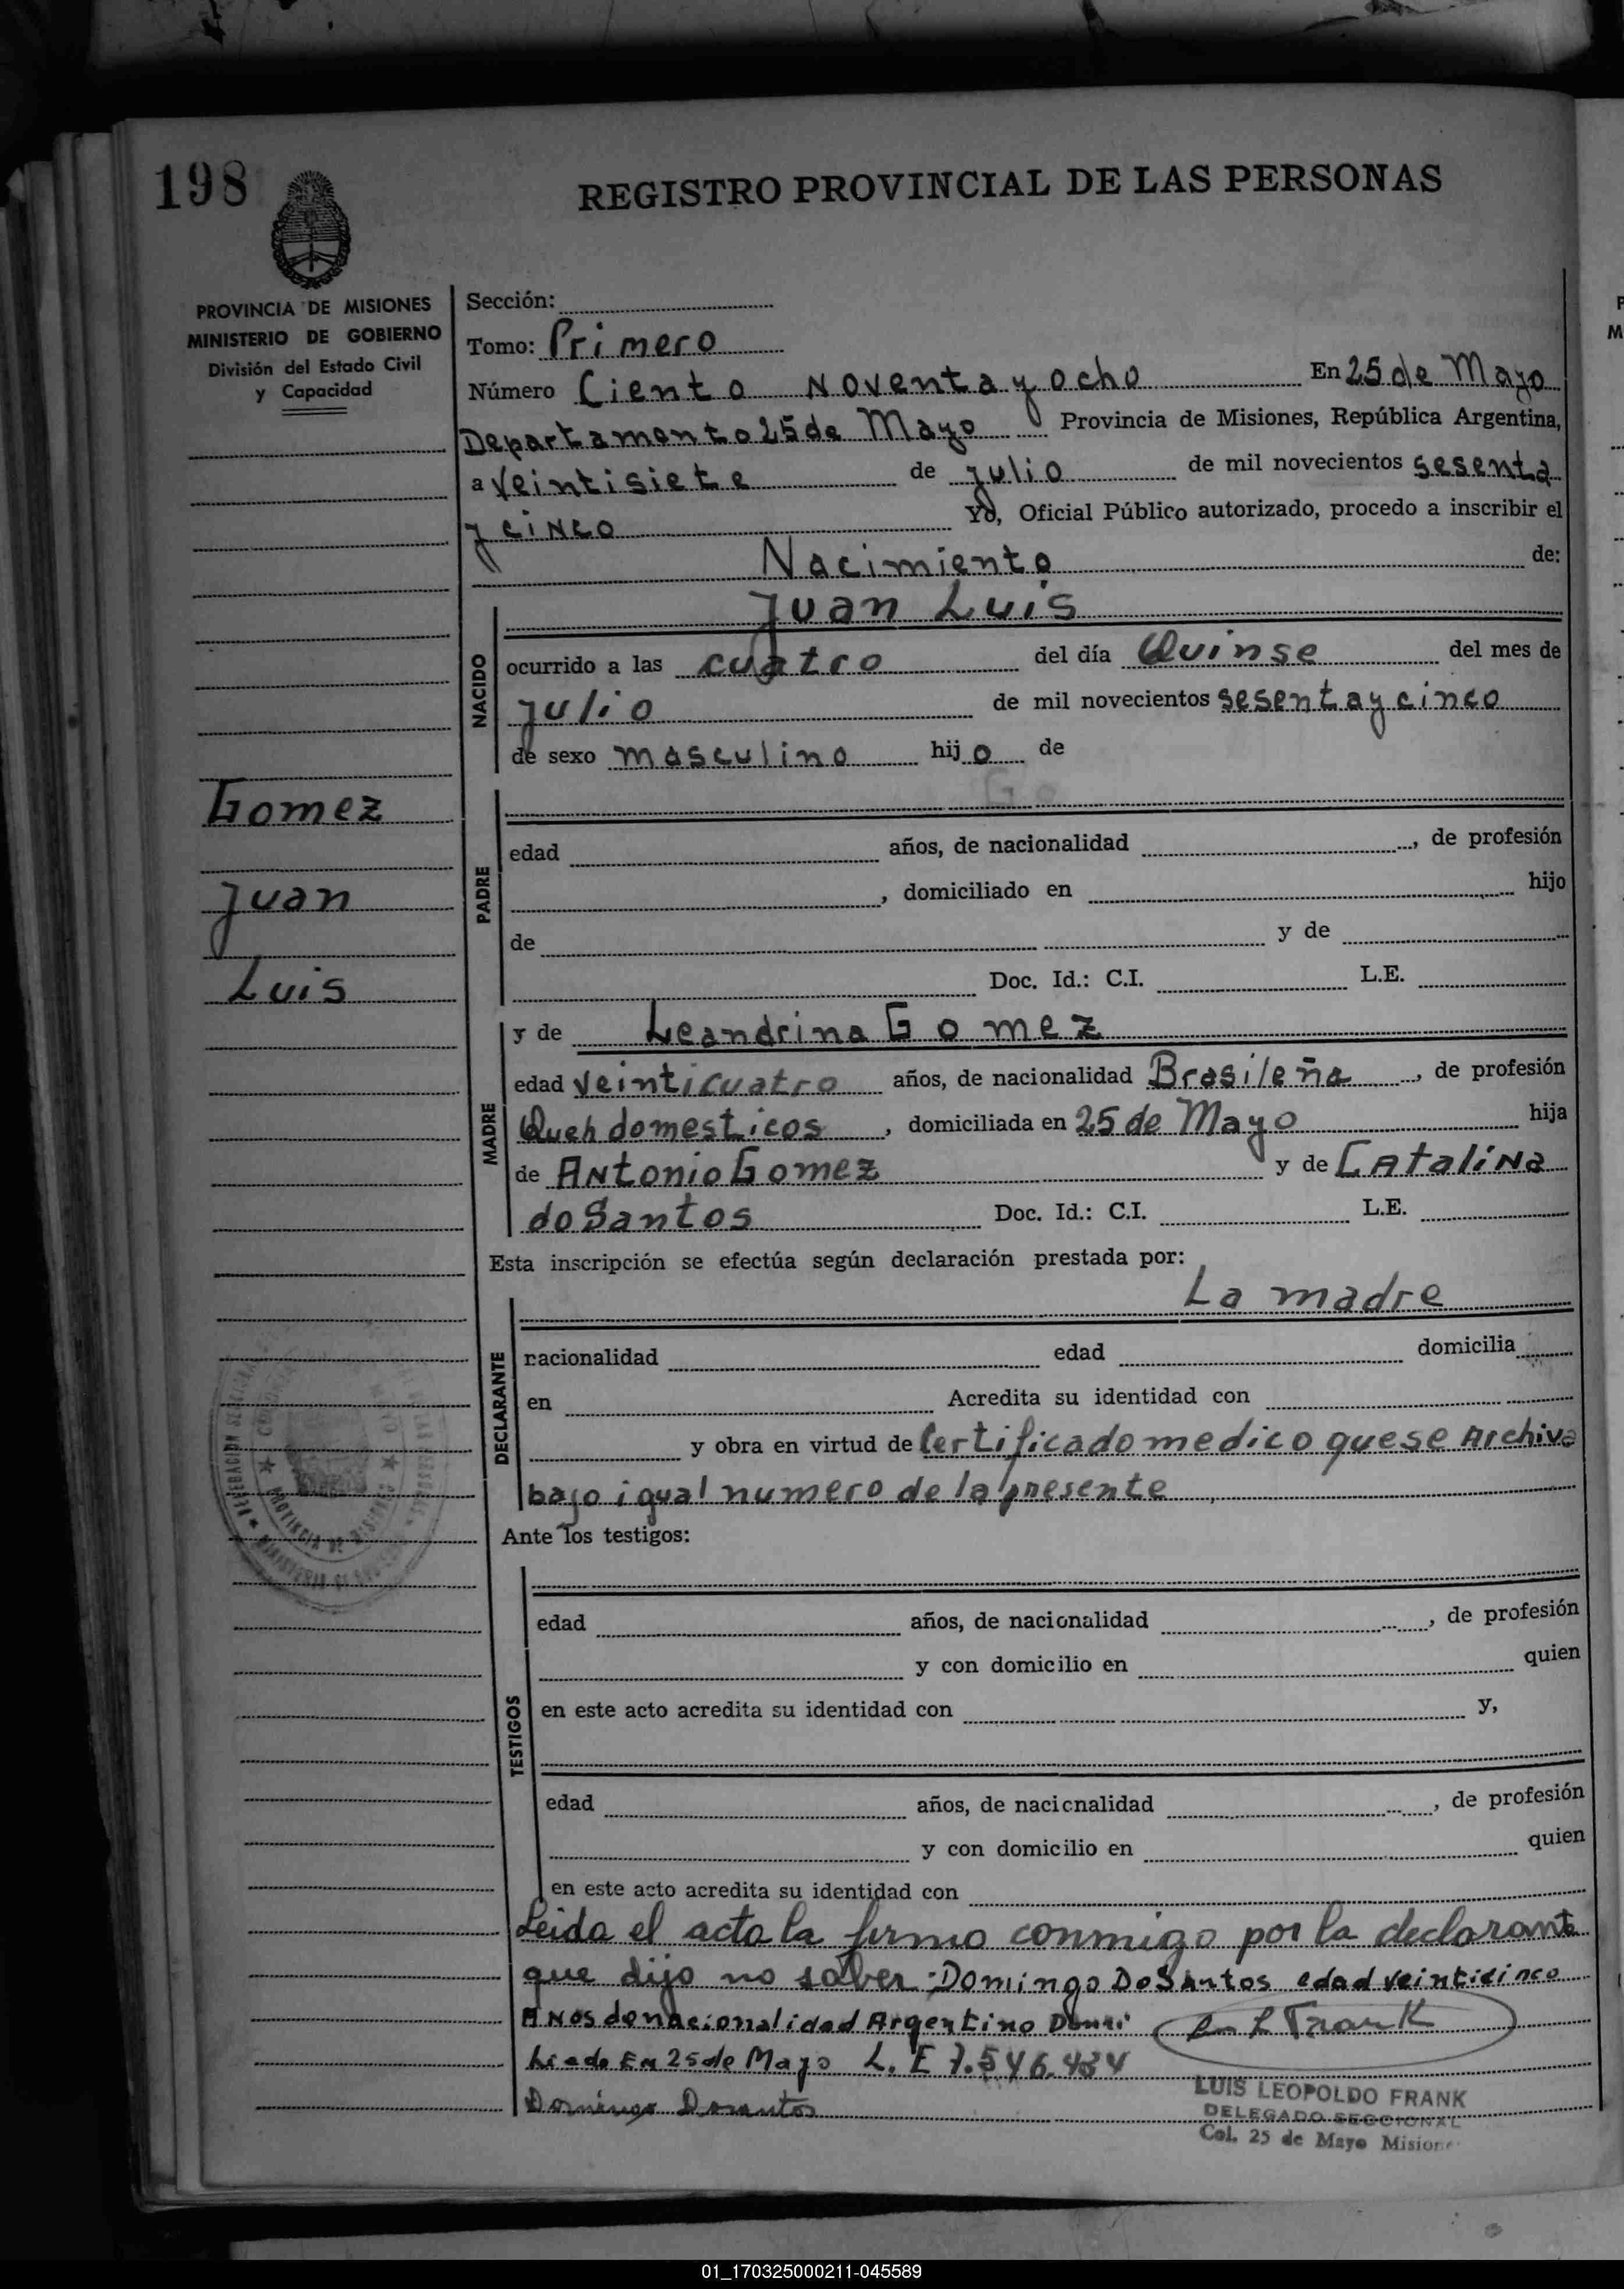 198
REGISTRO PROVINCIAL DE LAS PERSONAS
PROVINCIA DE MISIONES
MINISTERIO DE GOBIERNO
División del Estado Civil
y Capacidad
Gomez
Juan
Luis
Sección:
Tomo: Primero
Número Ciento Noventa y ocho En 25 de Mayo
Departamento 25 de Mayo Provincia de Misiones, República Argentina,
a veintisiete de julio de mil novecientos sesenta
y cinco Yo, Oficial Público autorizado, procedo a inscribir el
Nacimiento de:
NACIDO
Juan Luis
ocurrido a las cuatro del día Quinse del mes de
julio de mil novecientos sesenta y cinco
de sexo masculino hijo de
PADRE
edad años, de nacionalidad , de profesión
, domiciliado en hijo
de y de
Doc. Id.: C.I. L.E.
MADRE
y de Leandrina Gomez
edad veinticuatro años, de nacionalidad Brasileña , de profesión
Queh domesticos , domiciliada en 25 de Mayo hija
de Antonio Gomez y de Catalina
do Santos Doc. Id.: C.I. L.E.
Esta inscripción se efectúa según declaración prestada por:
DECLARANTE
La madre
nacionalidad edad domicilia
en Acredita su identidad con
y obra en virtud de Certificado medico que se Archiva
bajo igual numero de la presente
Ante los testigos:
TESTIGOS
edad años, de nacionalidad , de profesión
y con domicilio en quien
en este acto acredita su identidad con y,
edad años, de nacicnalidad , de profesión
y con domicilio en quien
en este acto acredita su identidad con
Leida el acta la firmo conmigo por la declarant
que dijo no saber: Domingo DoSantos edad veinticinco
Años de nacionalidad Argentino Domi
Liado En 25 de Mayo L. E 7.546.434
Domingo Dosantos
LUIS LEOPOLDO FRANK
DELEGADO SECCIONAL
Col. 25 de Mayo Misiones
01_170325000211-045589